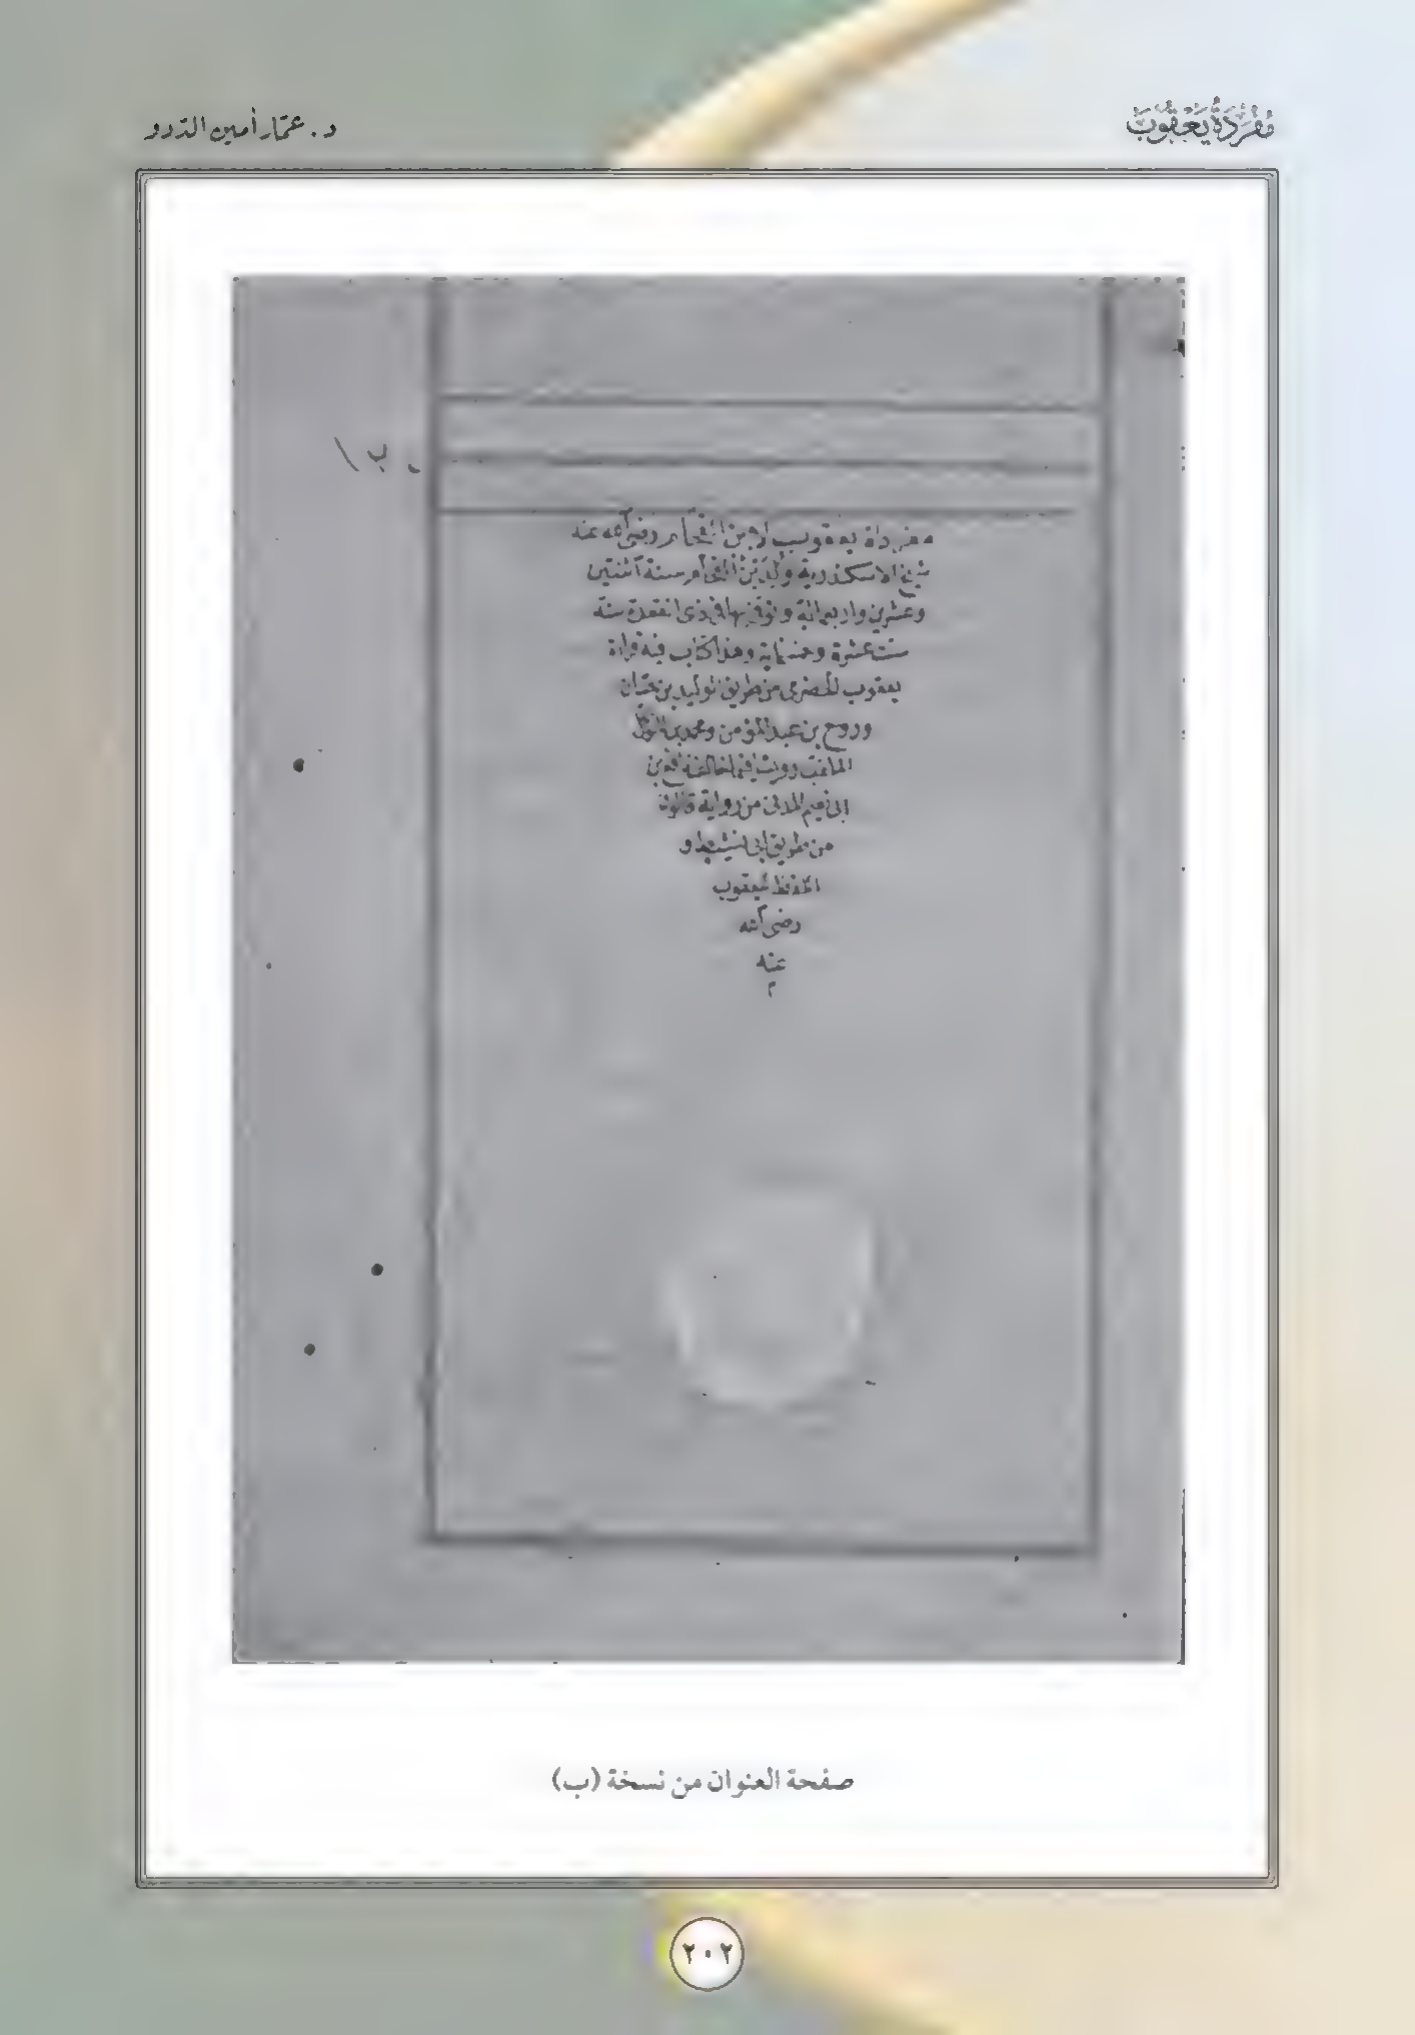 مُفْرَدَةُ يَعْقُوبَ
د. عمّار أمين الددو
ب ١
مفرداة يعقوب لابن الفحام رضي الله عنه
شيخ الاسكندرية ولد ابن الفحام سنة اثنتين
وعشرين واربعمائة وتوفي بها في ذي القعدة سنة
ست عشرة وخمسماية وهذا كتاب فيه قراة
يعقوب الحضرمي من طريق الوليد بن حسان
وروح بن عبد المؤمن ومحمد بن المتوكل
الملقب رويس فيما خالفه نافع بن
ابي نعيم المدني من رواية قالون
من طريق ابي نشيط و
اللفظ ليعقوب
رضي الله
عنه
م
صفحة العنوان من نسخة (ب)
٢٠٢